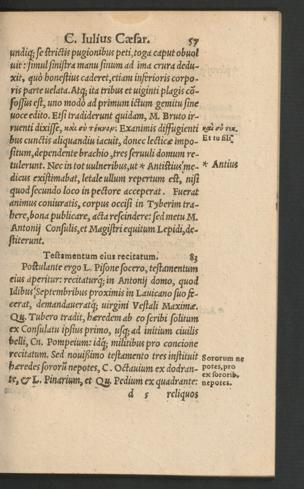 C. Iulius Cæsar. 57
undiq; se strictis pugionibus peti, toga caput obuol
uit: simul sinistra manu sinum ad ima crura dedu-
xit, quò honestius caderet, etiam inferioris corpo-
ris parte uelata. Atq; ita tribus et uiginti plagis cõ-
fossus est, uno modò ad primum ictum gemitu sine
uoce edito. Etsi tradiderunt quidam, M. Bruto ir-
ruenti dixisse, καὶ σὺ τέκνον; Exanimis diffugienti
καὶ σὺ τεκ.
Et tu fili
bus cunctis aliquandiu iacuit, donec lecticæ impo-
situm, dependente brachio, tres seruuli domum re-
tulerunt. Nec in tot uulneribus, ut * Antistius me-
* Antius
dicus existimabat, letale ullum repertum est, nisi
quod secundo loco in pectore acceperat. Fuerat
animus coniuratis, corpus occisi in Tyberim tra-
here, bona publicare, acta rescindere: sed metu M.
Antonij Consulis, et Magistri equitum Lepidi, de-
stiterunt.
Testamentum eius recitatum. 83
Postulante ergo L. Pisone socero, testamentum
eius aperitur: recitaturq; in Antonij domo, quod
Idibus Septembribus proximis in Lauicano suo fe-
cerat, demandaueratq; uirgini Vestali Maximæ.
Qu. Tubero tradit, hæredem ab eo scribi solitum
ex Consulatu ipsius primo, usq; ad initium ciuilis
belli, Cn. Pompeium: idq; militibus pro concione
recitatum. Sed nouissimo testamento tres instituit
hæredes sororũ nepotes, C. Octauium ex dodran-
te, & L. Pinarium, et Qu. Pedium ex quadrante:
Sororum ne
potes, pro
ex sororib.
nepotes.
d 5 reliquos